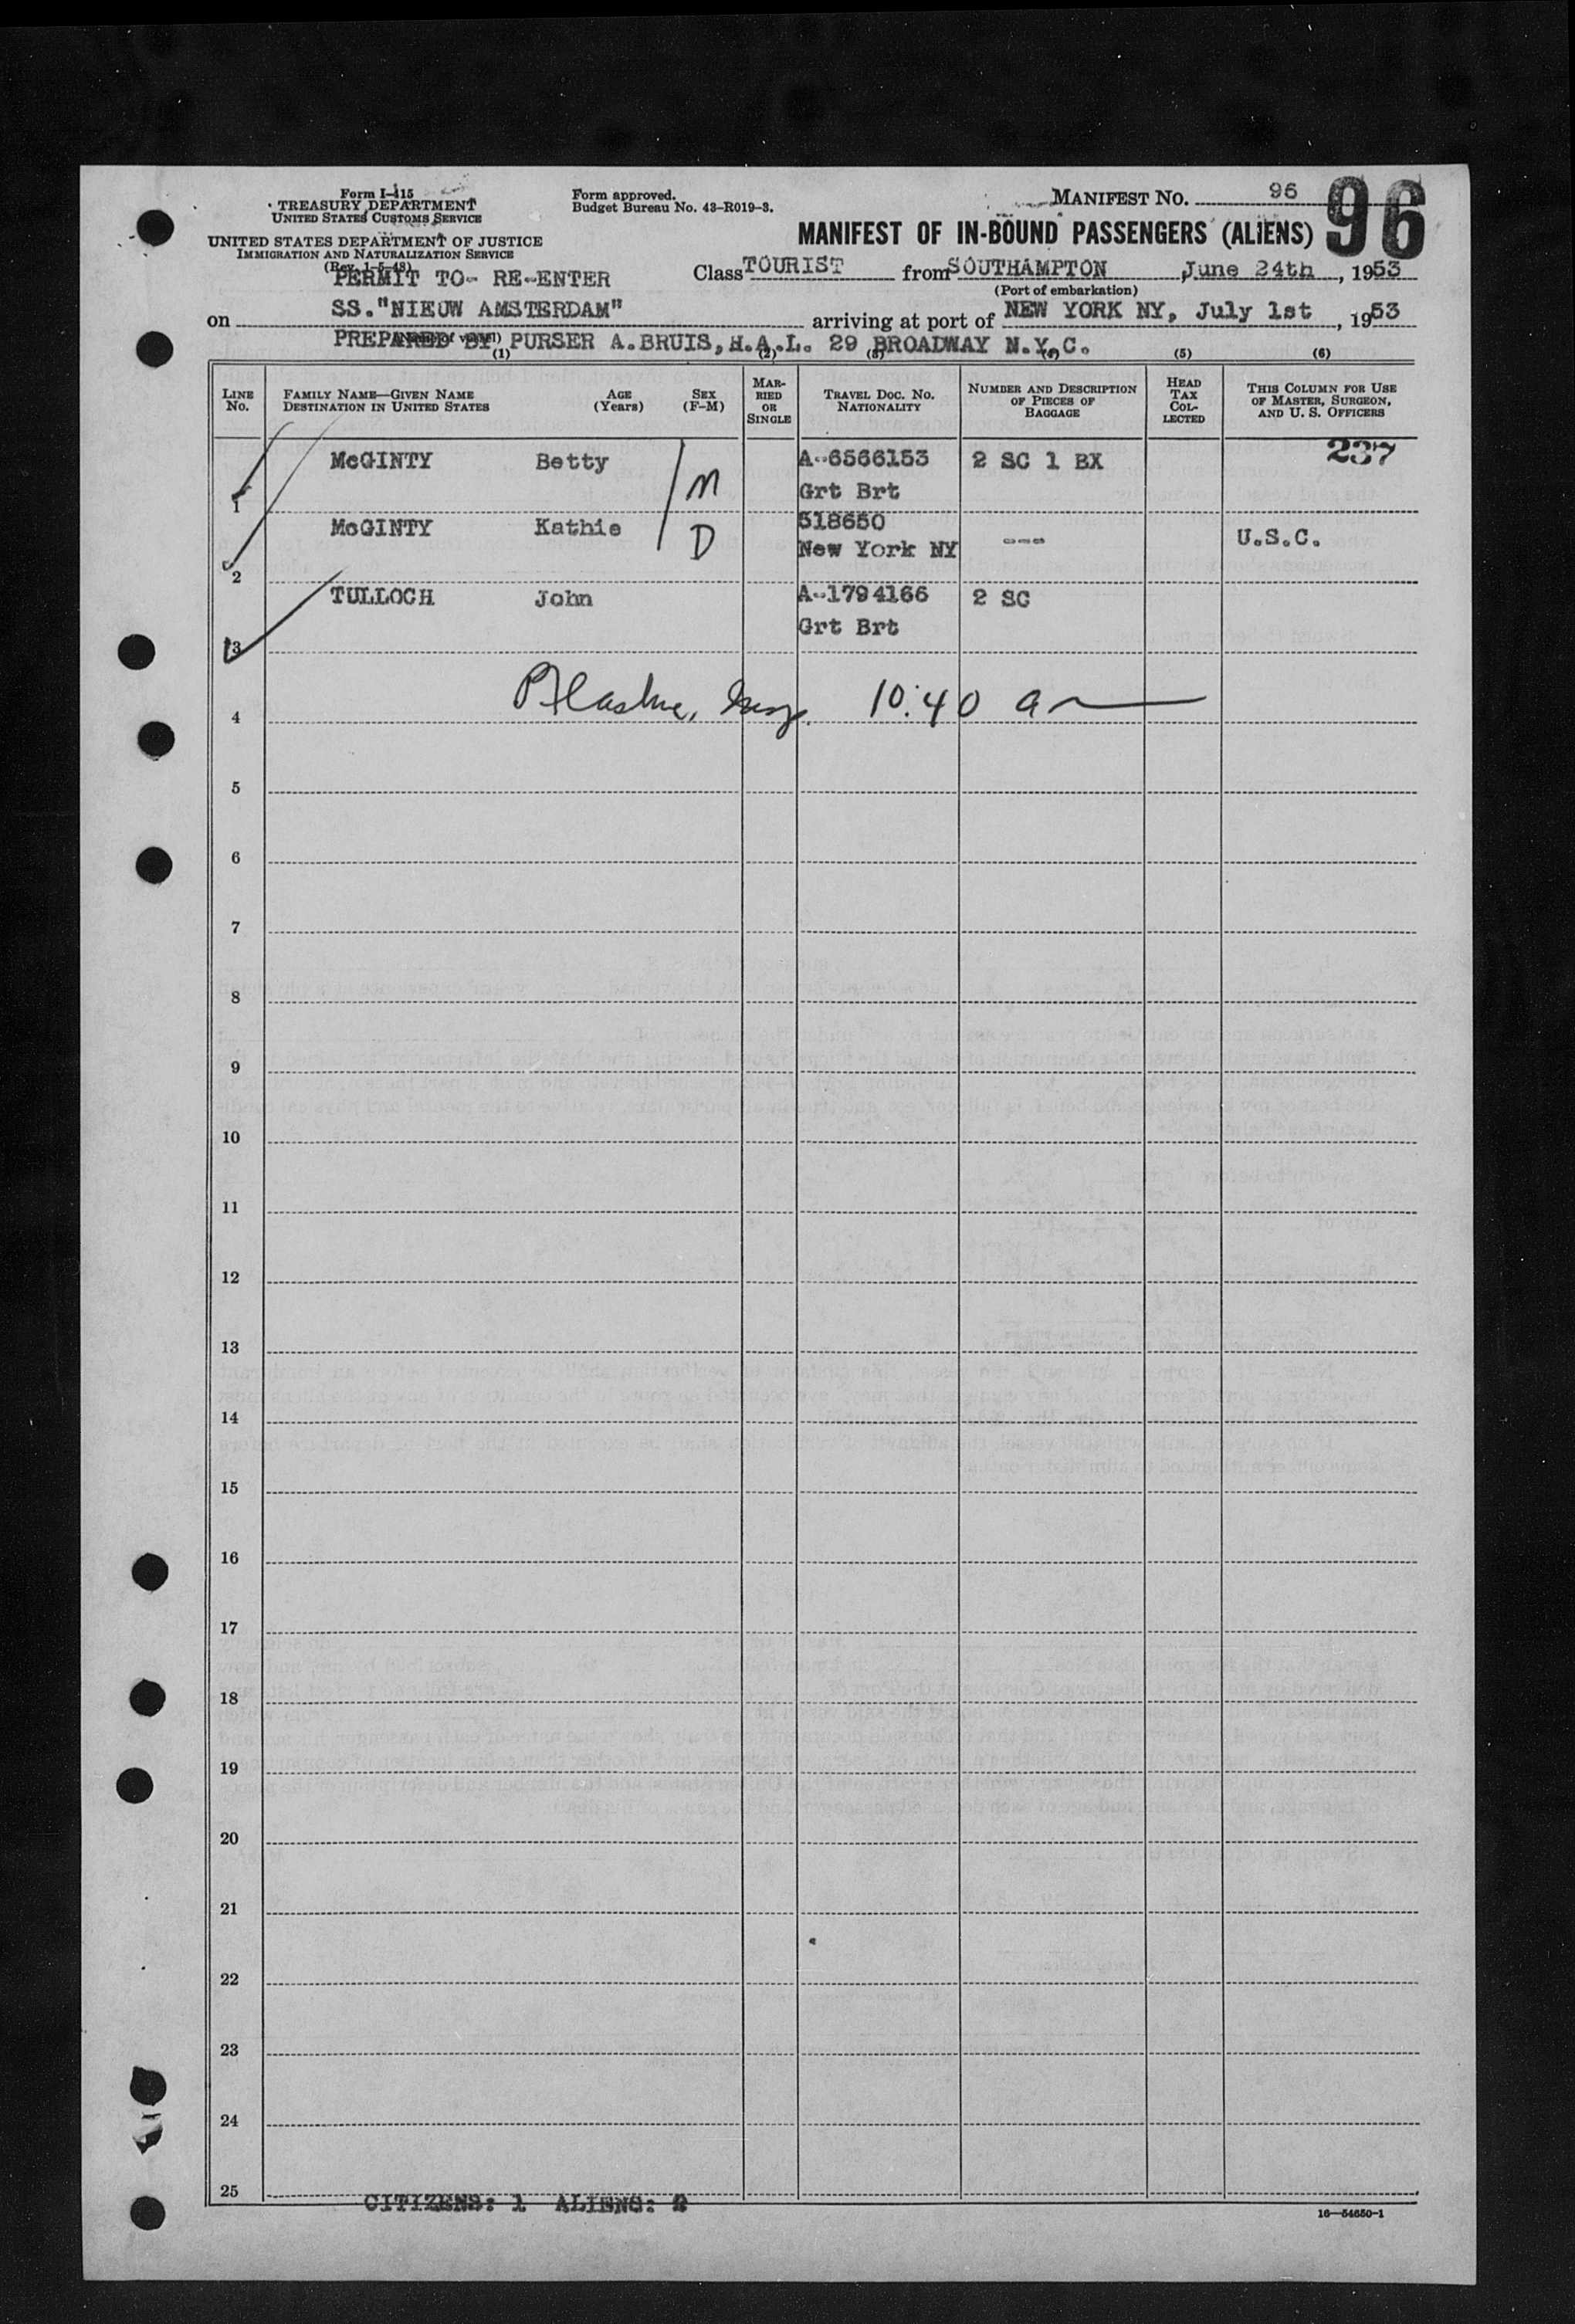 Form I-415
TREASURY DEPARTMENT
UNITED STATES CUSTOMS SERVICE
UNITED STATES DEPARTMENT OF JUSTICE
IMMIGRATION AND NATURALIZATION SERVICE
(Rev. 1-5-48)
Form approved.
Budget Bureau No. 43-R019-3.
MANIFEST NO. 96
96
MANIFEST OF IN-BOUND PASSENGERS (ALIENS)
PERMIT TO- RE-ENTER
Class TOURIST from SOUTHAMPTON June 24th, 1953
(Port of embarkation)
on SS."NIEUW AMSTERDAM" arriving at port of NEW YORK NY, July 1st, 1953
PREPARED BY PURSER A.BRUIS, H.A.L. 29 BROADWAY N.Y.C.
(1) (2) (3) (4) (5) (6)
LINE No. FAMILY NAME—GIVEN NAME DESTINATION IN UNITED STATES AGE (Years) SEX (F-M) MARRIED OR SINGLE TRAVEL DOC. NO. NATIONALITY NUMBER AND DESCRIPTION OF PIECES OF BAGGAGE HEAD TAX COLLECTED THIS COLUMN FOR USE OF MASTER, SURGEON, AND U. S. OFFICERS
237
1 McGINTY Betty M A-6566153 2 SC 1 BX
Grt Brt
2 McGINTY Kathie D 518650 --- U.S.C.
New York NY
3 TULLOCH John A-1794166 2 SC
Grt Brt
4 10:40 a
5
6
7
8
9
10
11
12
13
14
15
16
17
18
19
20
21
22
23
24
25
CITIZENS: 1 ALIENS: 2
16—54650-1